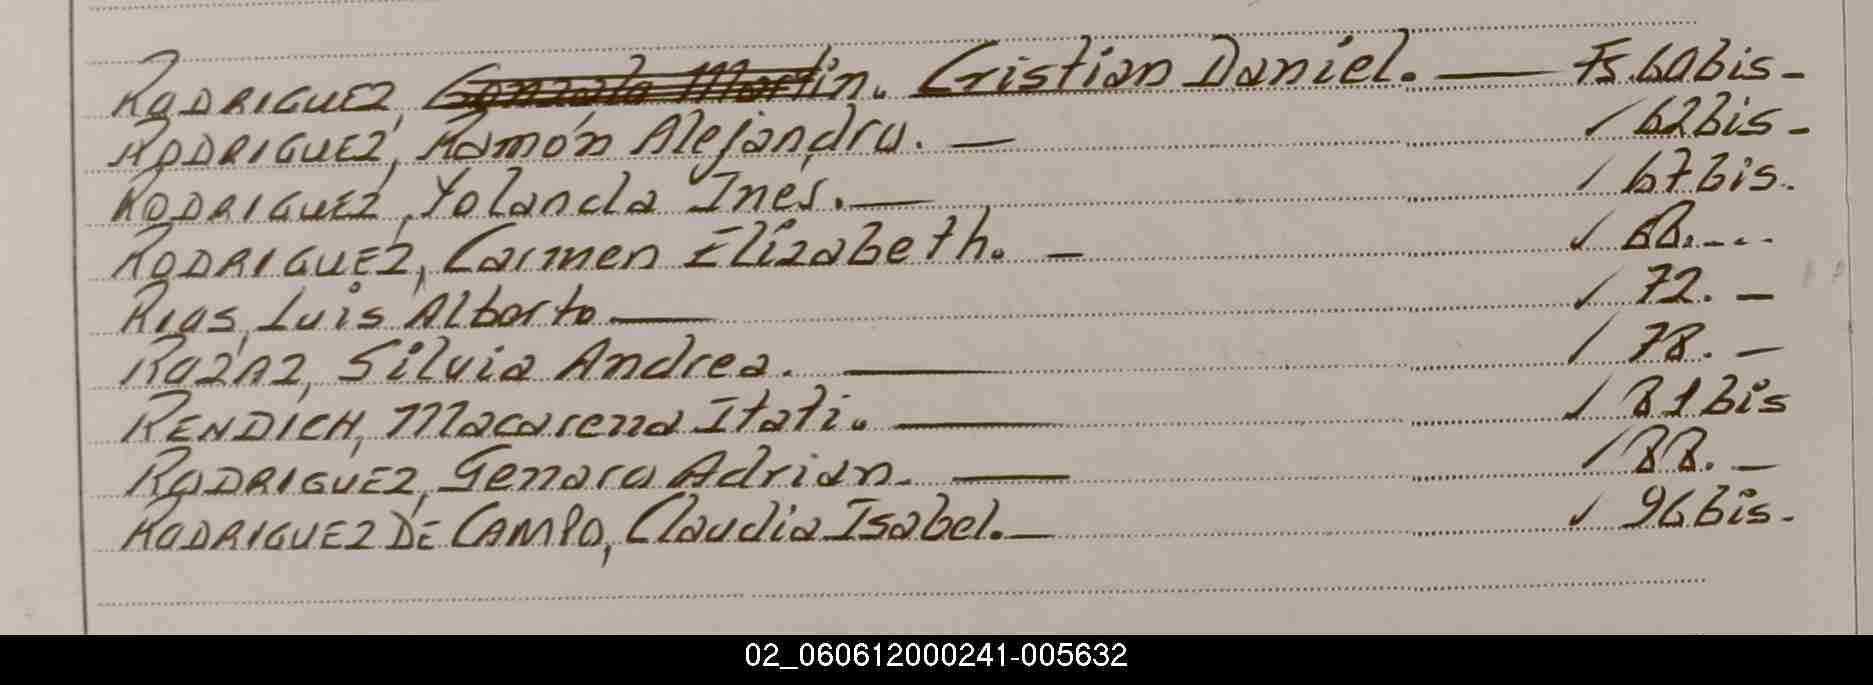 RODRIGUEZ, Gonzalo Martin. Cristian Daniel. — Fs.60bis-
RODRIGUEZ, Ramón Alejandro. — / 62bis-
RODRIGUEZ, Yolanda Inés. — / 67bis.
RODRIGUEZ, Carmen Elizabeth. — / 68.---
RIOS, Luis Alberto — / 72. —
Silvia Andrea. — / 78. —
RENDICH, Macarena Itati. — / 81bis
RODRIGUEZ, Genaro Adrian. — / 88. —
RODRIGUEZ DE CAMPO, Claudia Isabel. — / 96bis.
02_060612000241-005632